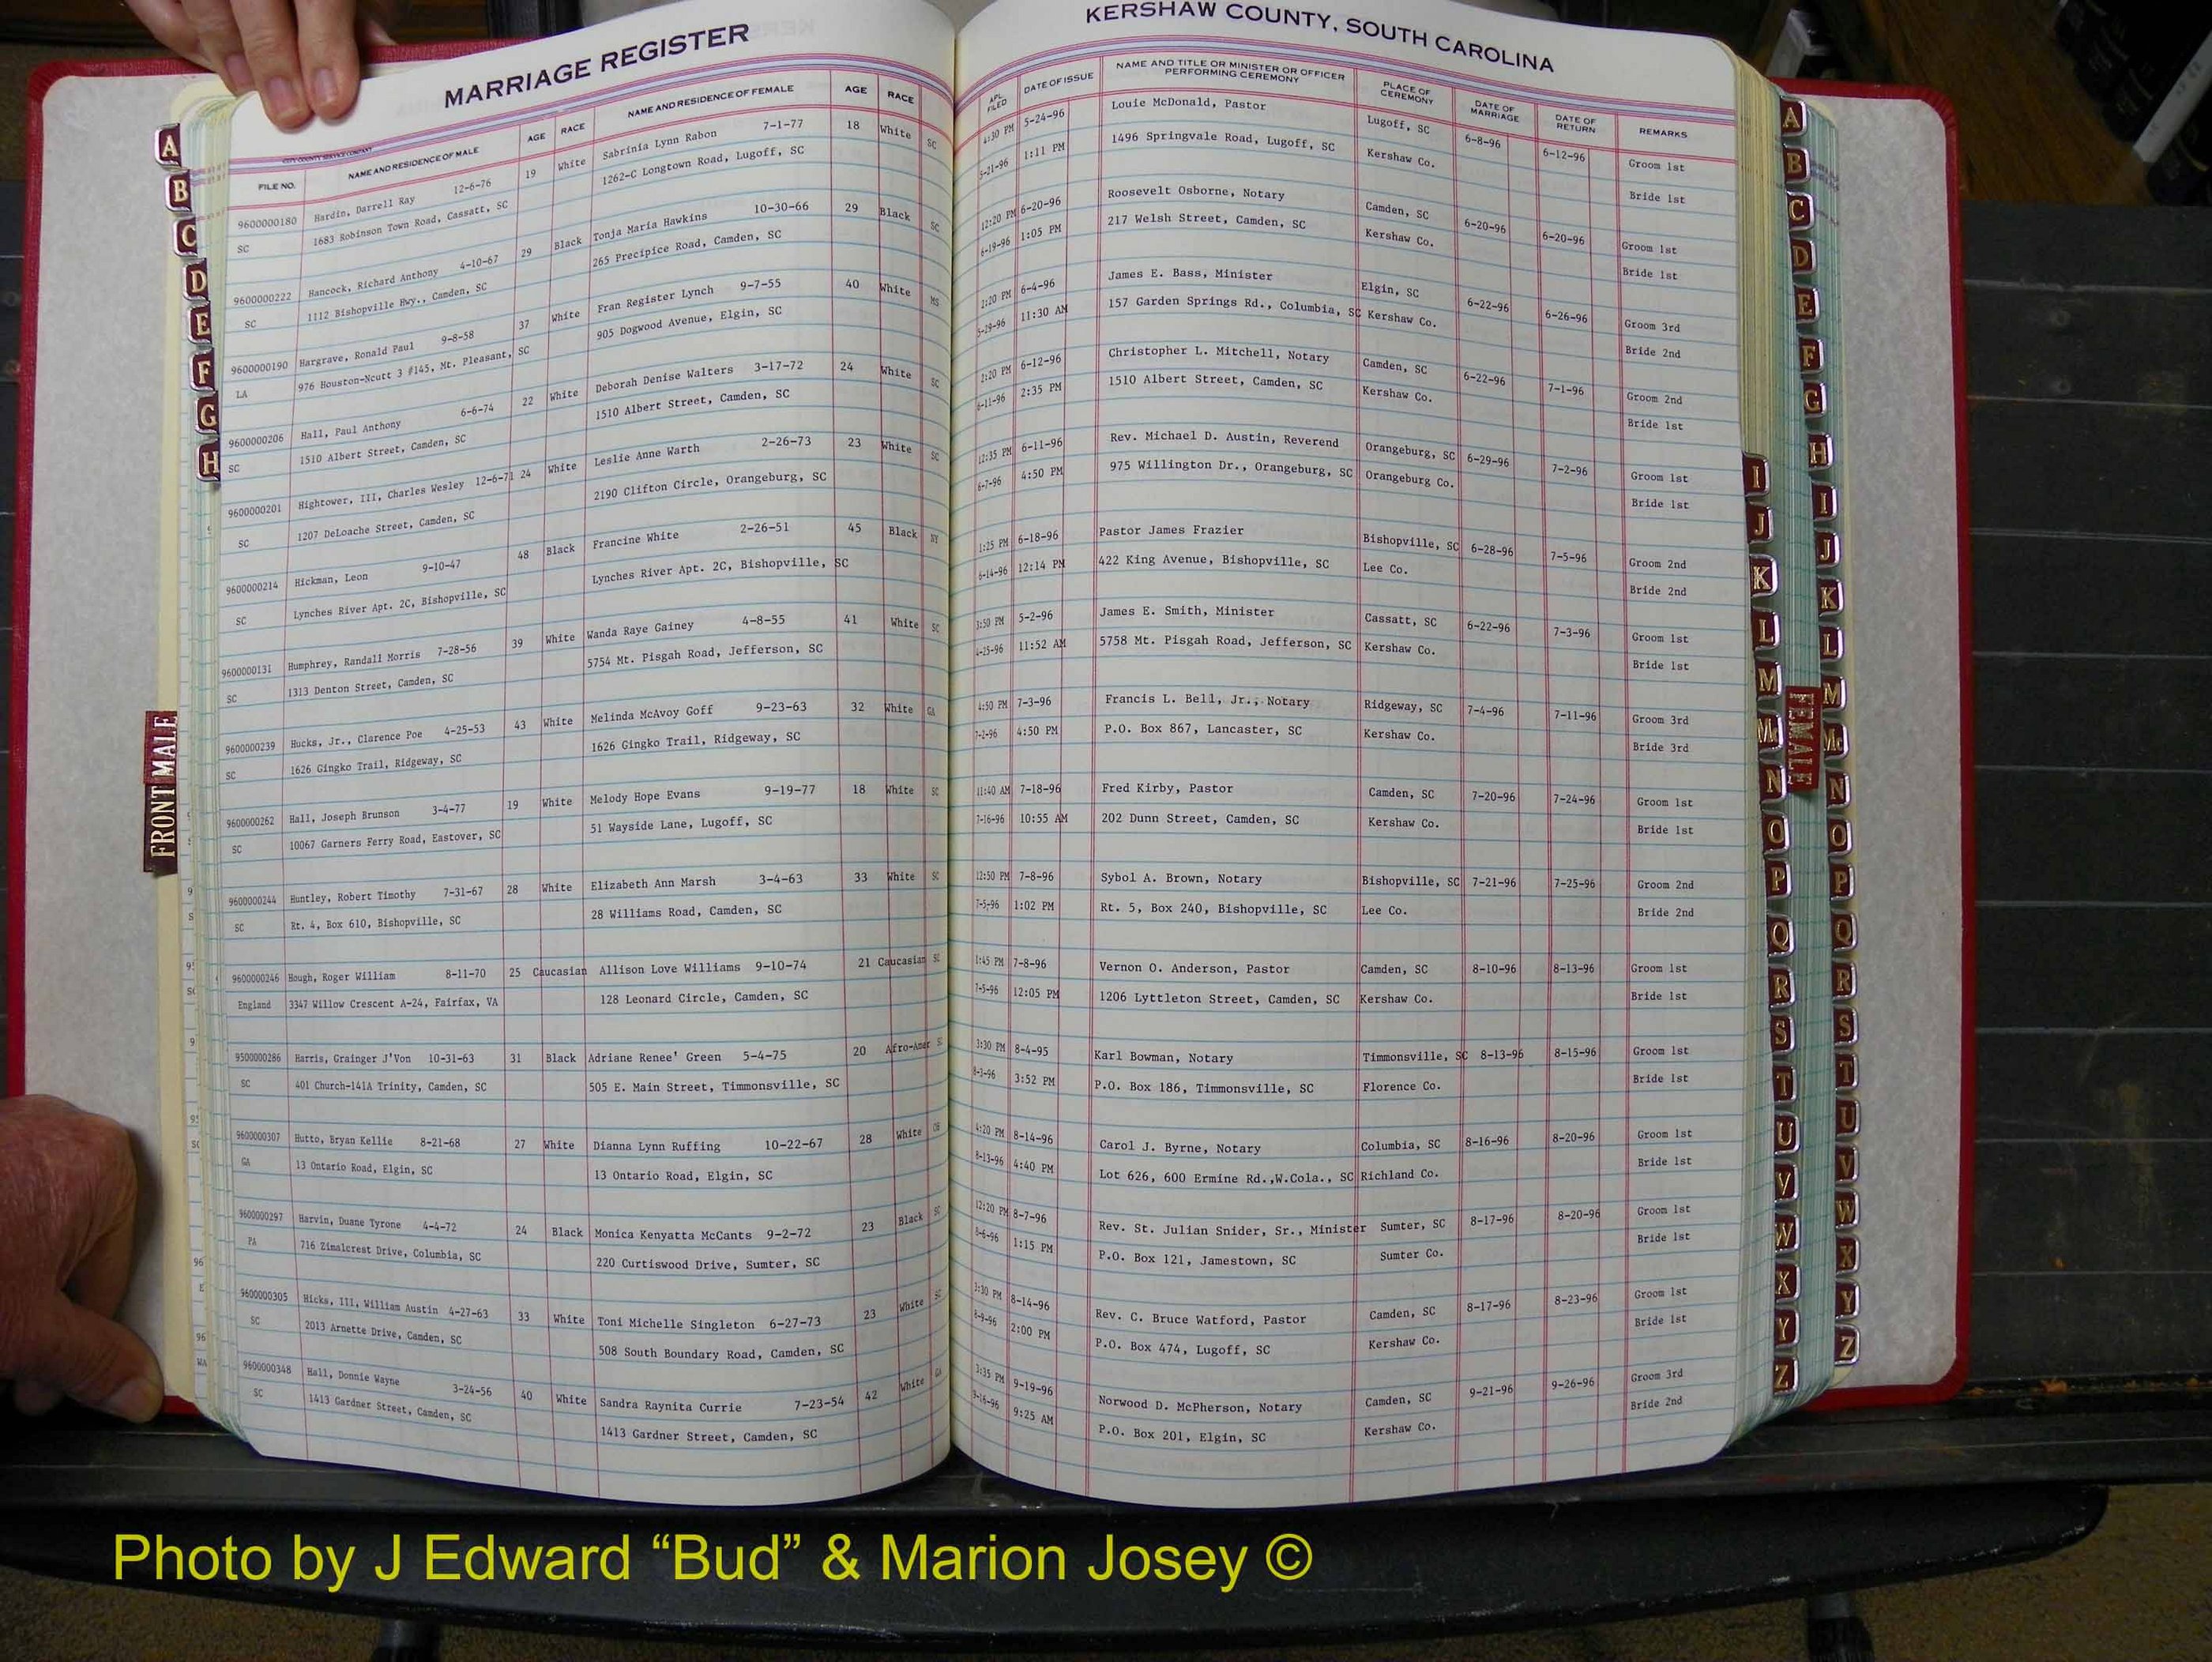 MARRIAGE REGISTER
CITY COUNTY SERVICE COMPANY
FILE NO. NAME AND RESIDENCE OF MALE AGE RACE NAME AND RESIDENCE OF FEMALE AGE RACE
9600000180 Hardin, Darrell Ray 12-6-76 19 White Sabrinia Lynn Rabon 7-1-77 18 White SC
SC 1683 Robinson Town Road, Cassatt, SC 1262-C Longtown Road, Lugoff, SC
9600000222 Hancock, Richard Anthony 4-10-67 29 Black Tonja Maria Hawkins 10-30-66 29 Black SC
SC 1112 Bishopville Hwy., Camden, SC 265 Precipice Road, Camden, SC
9600000190 Hargrave, Ronald Paul 9-8-58 37 White Fran Register Lynch 9-7-55 40 White MS
LA 976 Houston-Ncutt 3 #145, Mt. Pleasant, SC 905 Dogwood Avenue, Elgin, SC
9600000206 Hall, Paul Anthony 6-6-74 22 White Deborah Denise Walters 3-17-72 24 White SC
SC 1510 Albert Street, Camden, SC 1510 Albert Street, Camden, SC
9600000201 Hightower, III, Charles Wesley 12-6-71 24 White Leslie Anne Warth 2-26-73 23 White SC
SC 1207 DeLoache Street, Camden, SC 2190 Clifton Circle, Orangeburg, SC
9600000214 Hickman, Leon 9-10-47 48 Black Francine White 2-26-51 45 Black NY
SC Lynches River Apt. 2C, Bishopville, SC Lynches River Apt. 2C, Bishopville, SC
9600000131 Humphrey, Randall Morris 7-28-56 39 White Wanda Raye Gainey 4-8-55 41 White SC
SC 1313 Denton Street, Camden, SC 5754 Mt. Pisgah Road, Jefferson, SC
9600000239 Hucks, Jr., Clarence Poe 4-25-53 43 White Melinda McAvoy Goff 9-23-63 32 White GA
SC 1626 Gingko Trail, Ridgeway, SC 1626 Gingko Trail, Ridgeway, SC
9600000262 Hall, Joseph Brunson 3-4-77 19 White Melody Hope Evans 9-19-77 18 White SC
SC 10067 Garners Ferry Road, Eastover, SC 51 Wayside Lane, Lugoff, SC
9600000244 Huntley, Robert Timothy 7-31-67 28 White Elizabeth Ann Marsh 3-4-63 33 White SC
SC Rt. 4, Box 610, Bishopville, SC 28 Williams Road, Camden, SC
9600000246 Hough, Roger William 8-11-70 25 Caucasian Allison Love Williams 9-10-74 21 Caucasian SC
England 3347 Willow Crescent A-24, Fairfax, VA 128 Leonard Circle, Camden, SC
9500000286 Harris, Grainger J'Von 10-31-63 31 Black Adriane Renee' Green 5-4-75 20 Afro-Amer SC
SC 401 Church-141A Trinity, Camden, SC 505 E. Main Street, Timmonsville, SC
9600000307 Hutto, Bryan Kellie 8-21-68 27 White Dianna Lynn Ruffing 10-22-67 28 White OH
GA 13 Ontario Road, Elgin, SC 13 Ontario Road, Elgin, SC
9600000297 Harvin, Duane Tyrone 4-4-72 24 Black Monica Kenyatta McCants 9-2-72 23 Black SC
PA 716 Zimalcrest Drive, Columbia, SC 220 Curtiswood Drive, Sumter, SC
9600000305 Hicks, III, William Austin 4-27-63 33 White Toni Michelle Singleton 6-27-73 23 White SC
SC 2013 Arnette Drive, Camden, SC 508 South Boundary Road, Camden, SC
9600000348 Hall, Donnie Wayne 3-24-56 40 White Sandra Raynita Currie 7-23-54 42 White GA
SC 1413 Gardner Street, Camden, SC 1413 Gardner Street, Camden, SC
KERSHAW COUNTY, SOUTH CAROLINA
APL. FILED DATE OF ISSUE NAME AND TITLE OR MINISTER OR OFFICER PERFORMING CEREMONY PLACE OF CEREMONY DATE OF MARRIAGE DATE OF RETURN REMARKS
4:30 PM 5-24-96 Louie McDonald, Pastor Lugoff, SC 6-8-96 6-12-96 Groom 1st
5-21-96 1:11 PM 1496 Springvale Road, Lugoff, SC Kershaw Co. Bride 1st
12:20 PM 6-20-96 Roosevelt Osborne, Notary Camden, SC 6-20-96 6-20-96 Groom 1st
6-19-96 1:05 PM 217 Welsh Street, Camden, SC Kershaw Co. Bride 1st
2:20 PM 6-4-96 James E. Bass, Minister Elgin, SC 6-22-96 6-26-96 Groom 3rd
5-29-96 11:30 AM 157 Garden Springs Rd., Columbia, SC Kershaw Co. Bride 2nd
2:20 PM 6-12-96 Christopher L. Mitchell, Notary Camden, SC 6-22-96 7-1-96 Groom 2nd
6-11-96 2:35 PM 1510 Albert Street, Camden, SC Kershaw Co. Bride 1st
12:35 PM 6-11-96 Rev. Michael D. Austin, Reverend Orangeburg, SC 6-29-96 7-2-96 Groom 1st
6-7-96 4:50 PM 975 Willington Dr., Orangeburg, SC Orangeburg Co. Bride 1st
1:25 PM 6-18-96 Pastor James Frazier Bishopville, SC 6-28-96 7-5-96 Groom 2nd
6-14-96 12:14 PM 422 King Avenue, Bishopville, SC Lee Co. Bride 2nd
3:50 PM 5-2-96 James E. Smith, Minister Cassatt, SC 6-22-96 7-3-96 Groom 1st
4-25-96 11:52 AM 5758 Mt. Pisgah Road, Jefferson, SC Kershaw Co. Bride 1st
4:50 PM 7-3-96 Francis L. Bell, Jr., Notary Ridgeway, SC 7-4-96 7-11-96 Groom 3rd
7-2-96 4:50 PM P.O. Box 867, Lancaster, SC Kershaw Co. Bride 3rd
11:40 AM 7-18-96 Fred Kirby, Pastor Camden, SC 7-20-96 7-24-96 Groom 1st
7-16-96 10:55 AM 202 Dunn Street, Camden, SC Kershaw Co. Bride 1st
12:50 PM 7-8-96 Sybol A. Brown, Notary Bishopville, SC 7-21-96 7-25-96 Groom 2nd
7-5-96 1:02 PM Rt. 5, Box 240, Bishopville, SC Lee Co. Bride 2nd
1:45 PM 7-8-96 Vernon O. Anderson, Pastor Camden, SC 8-10-96 8-13-96 Groom 1st
7-5-96 12:05 PM 1206 Lyttleton Street, Camden, SC Kershaw Co. Bride 1st
3:30 PM 8-4-95 Karl Bowman, Notary Timmonsville, SC 8-13-96 8-15-96 Groom 1st
8-3-96 3:52 PM P.O. Box 186, Timmonsville, SC Florence Co. Bride 1st
4:20 PM 8-14-96 Carol J. Byrne, Notary Columbia, SC 8-16-96 8-20-96 Groom 1st
8-13-96 4:40 PM Lot 626, 600 Ermine Rd.,W.Cola., SC Richland Co. Bride 1st
12:20 PM 8-7-96 Rev. St. Julian Snider, Sr., Minister Sumter, SC 8-17-96 8-20-96 Groom 1st
8-6-96 1:15 PM P.O. Box 121, Jamestown, SC Sumter Co. Bride 1st
3:30 PM 8-14-96 Rev. C. Bruce Watford, Pastor Camden, SC 8-17-96 8-23-96 Groom 1st
8-9-96 2:00 PM P.O. Box 474, Lugoff, SC Kershaw Co. Bride 1st
3:35 PM 9-19-96 Norwood D. McPherson, Notary Camden, SC 9-21-96 9-26-96 Groom 3rd
9-16-96 9:25 AM P.O. Box 201, Elgin, SC Kershaw Co. Bride 2nd
A
B
C
D
E
F
G
H
FRONT MALE
I
J
K
L
M
Mc
N
O
P
Q
R
S
T
U
V
W
X
Y
Z
FEMALE
A
B
C
D
E
F
G
H
I
J
K
L
M
Mc
N
O
P
Q
R
S
T
U
V
W
X
Y
Z
Photo by J Edward “Bud” & Marion Josey ©